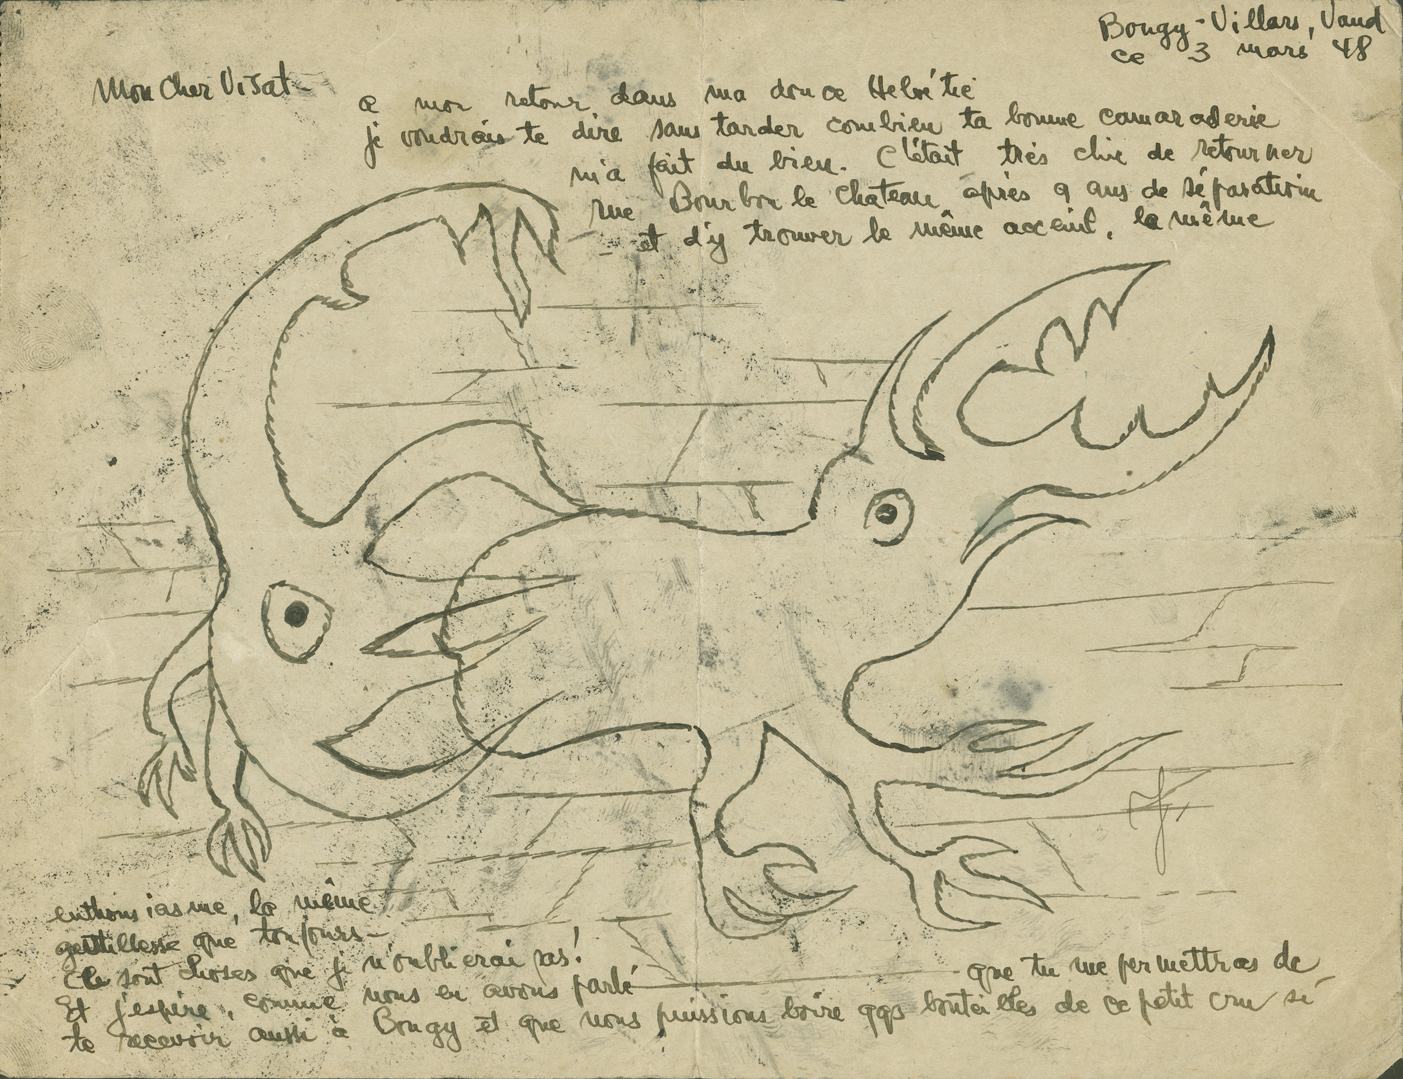 Bougy-Villars, Vaud
ce 3 mars 48
Mon Cher Visat-
a mon retour dans ma douce Helvétie
je voudrais te dire sans tarder combien ta bonne camaraderie
m'a fait du bien. C'était très chic de retourner
rue Bourbon le Chateau après 9 ans de séparation
- et d'y trouver le même acceuil, la même
enthousiasme, la même
gentillesse que toujours-
Ce sont choses que je n'oublierai pas!
Et j'espère, comme nous en avons parlé que tu me permettras de
te recevoir aussi à Bougy et que nous puissions boire qqs bouteilles de ce petit cru si